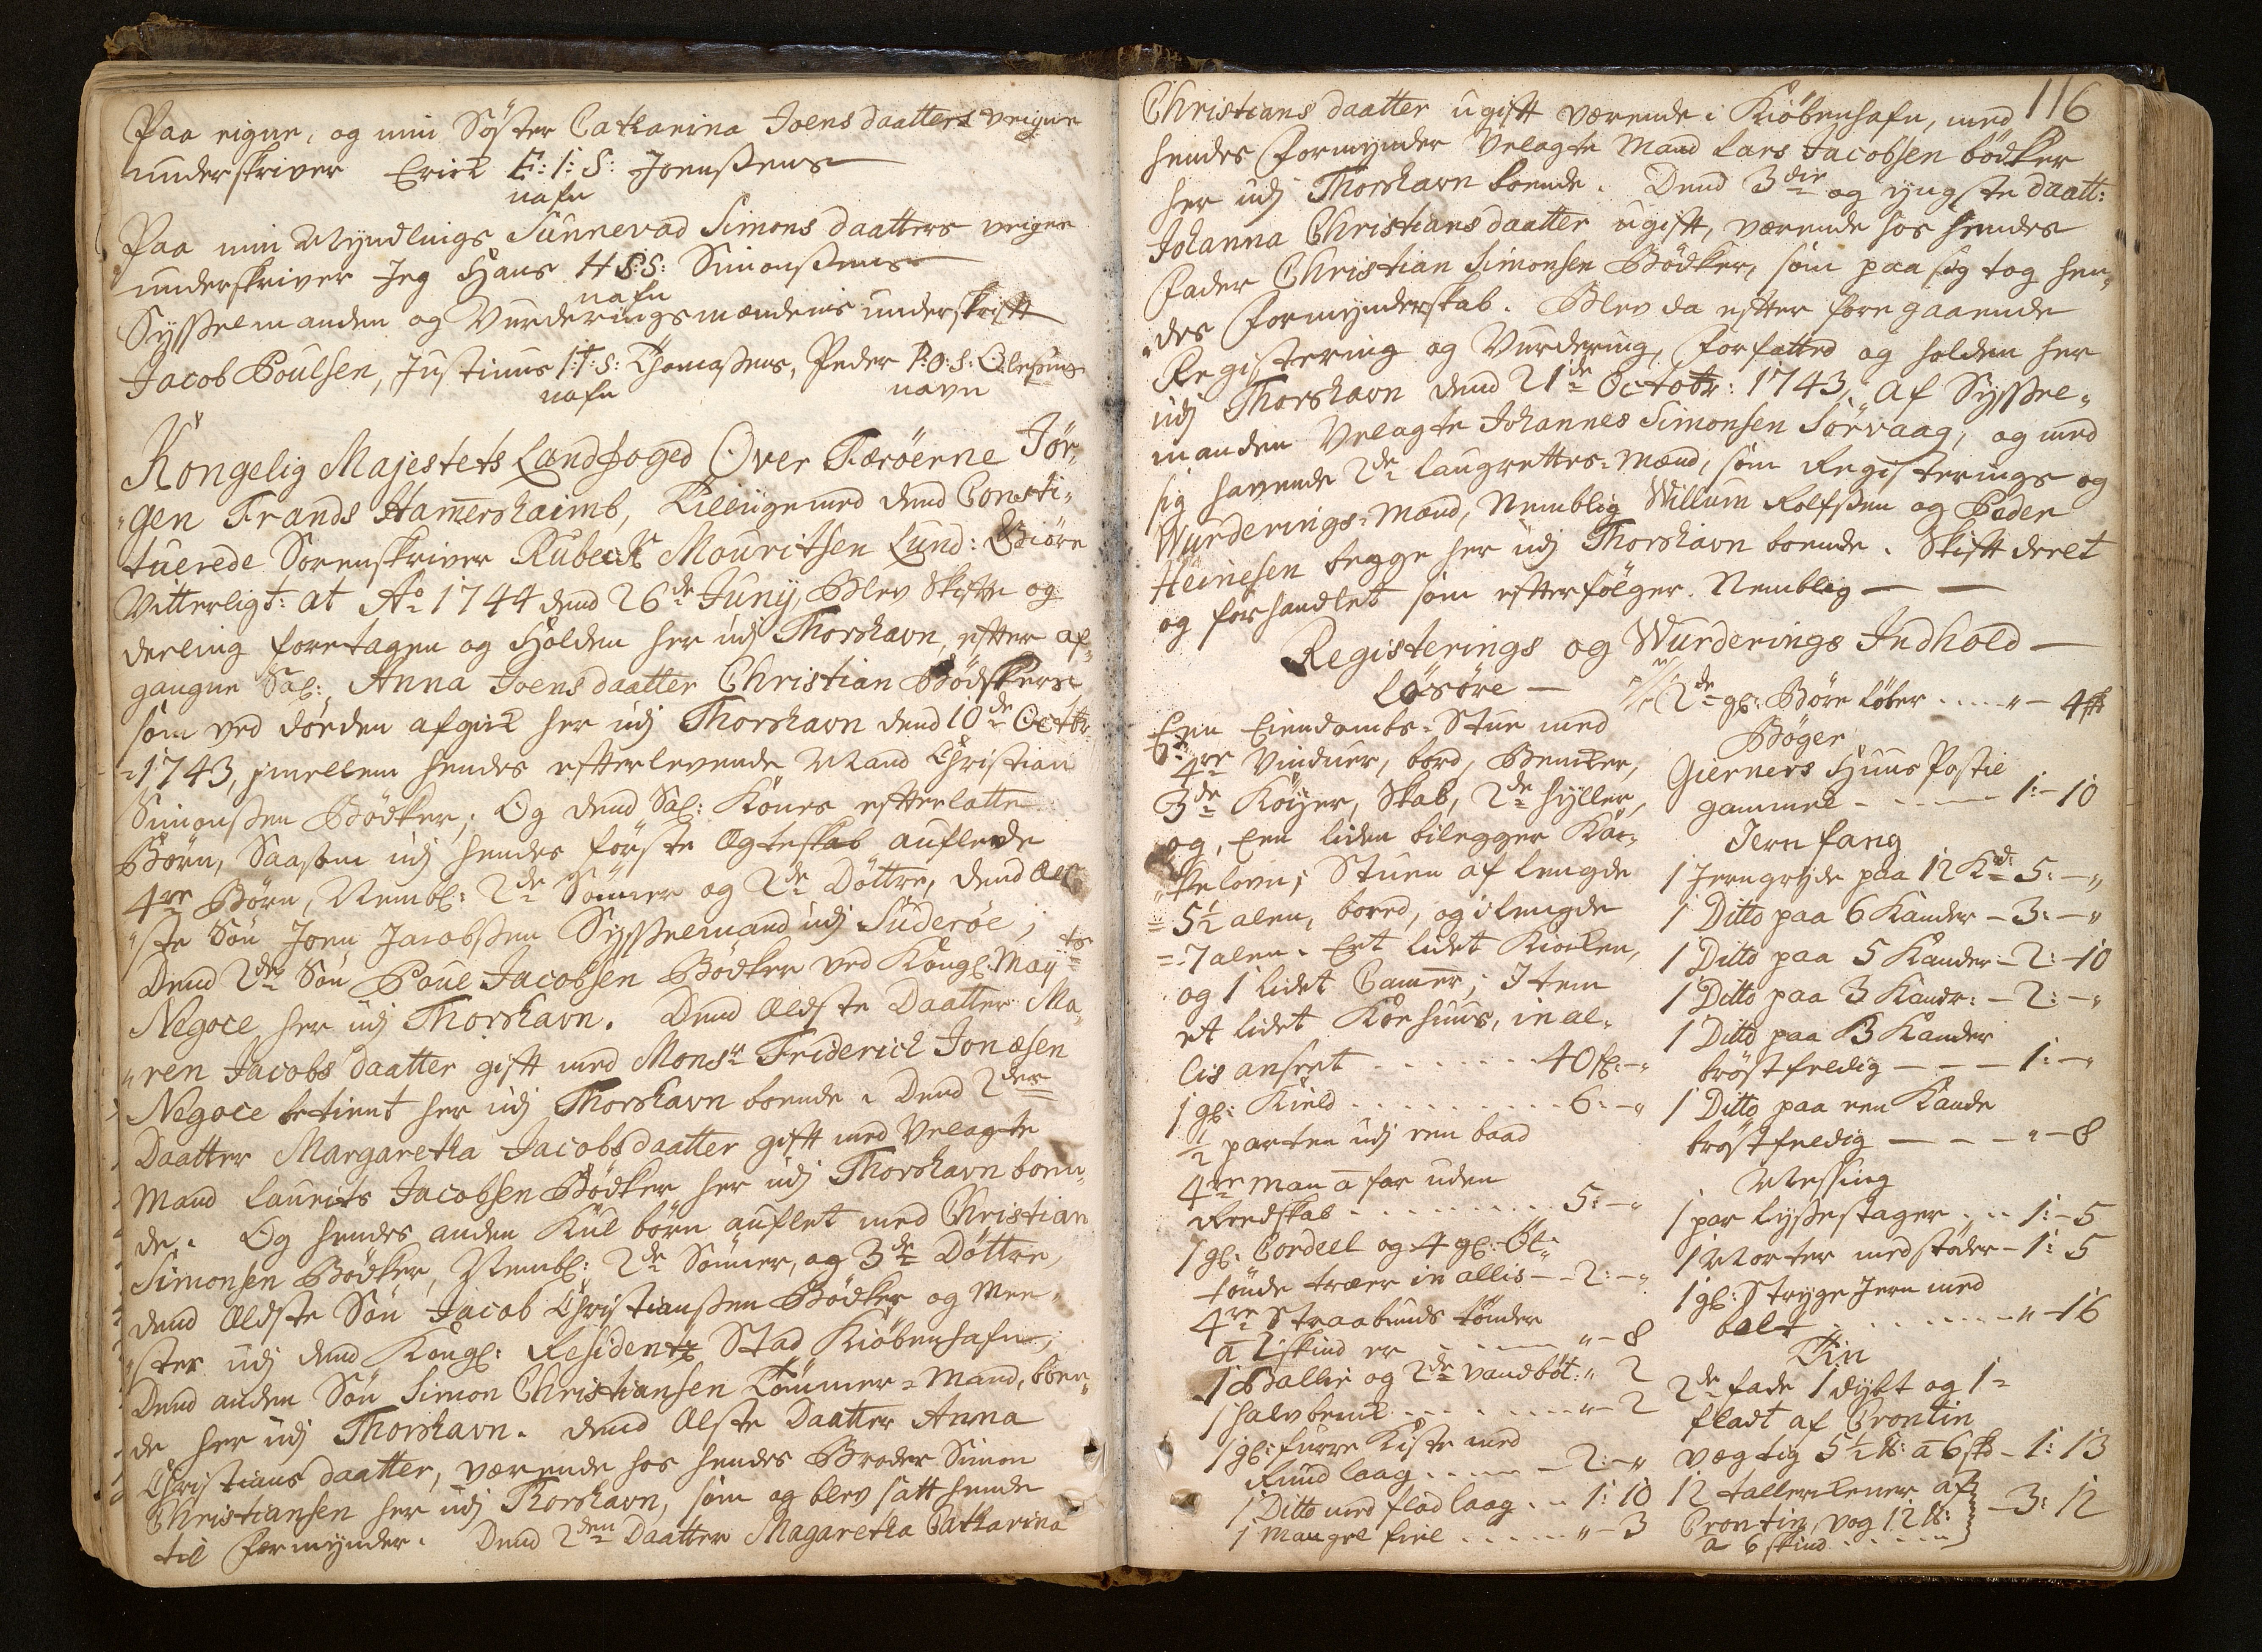 Paa eigne, og min Söster Catharina Joensdaatters veigne
underskriver Erick E: I: S: Joensßens
nafn
Paa min Myndlings Sunnevad Simonsdaatters veigne
underskriver Jeg Hans H S: S: Simonßens
nafn
Sysselmanden og Vurderingsmændenis underskrift
Jacob Poulsen, Justinus I: T: S: Thomaßens, Peder P: O: S: Olesens
nafn navn
Kongelig Majestets Landfoged Over Færöerne Jör,
„gen Frands Hamershaimb, Tilligemed dend Consti,
tuerede Sorenskriver Rubech Mouritsen Lund: Giöre
Vitterligt: at Ao 1744 dend 26de Junij, Blev Skifte og
deeling foretagen og Holden her udj Thorshavn, efter af,
gangne Sal: Anna Joensdaatter Christian Bödkers
som ved döeden afgick her udj Thorshavn dend 10de Octbr
1743, imellem hendes efterlevende Mand Christian
Simonßen Bödker; Og dend Sal: Kones efterlatte
Börn, Saasom udj hendes förste Ægteskab auflede
4re Börn, Nembl: 2de Sönner og 2de Döttre, dend Æl
„ste Sön Joen Jacobßen Sysselmand udj Suderöe;
Dend 2den Sön Poul Jacobsen Bödker ved Kongl: May ts
Negoce her udj Thorshavn. Dend Ældste Daatter Ma,
„ren Jacobsdaatter gift med Monsr Friderich Jonæsen
Negoce betient her udj Thorshavn boende. Dend 2den
Daatter Margaretha Jacobsdaatter gift med Velagte
Mand Laurits Jacobsen Bödker her udj Thorshavn boen,
de. Og hendes anden Kul börn auflet med Christian
Simonsen Bödker, Nembl: 2de Sönner, og 3de Döttre,
dend Ældste Sön Jacob Christianßen Bödker og Mee,
„ster udj dend Kongl: Residentz Stad Kiöbenhafn;
Dend anden Sön Simon Christiansen Tömmer-Mand, boen,
de her udj Thorshavn. dend Ælste Daatter Anna
Christiansdaatter, værende hos hendes Broder Simon
Christiansen her udj Thorshavn, som og blev satt hende
til Formynder. Dend 2den Daatter Magaretha Catharina
116
Christiansdaatter ugift værende i Kiöbenhafn, med
hendes Formynder Velagte Mand Lars Jacobsen bödker
her udj Thorshavn boende. Dend 3die og yngste daatt:
Johanna Christiansdaatter ugift, værende hos hendes
Fader Christian Simonsen Bödker, som paa sig tog hen,
„des Formynderskab. Blev da efter foregaaende
Registering og Vurdering, Forfatted og holden her
udj Thorshavn dend 21de Octobr: 1743, af Syssel,
manden Velagte Johannes Simonsen Sörvaag, og med
sig havende 2de laugrettes-Mænd, som Registerings og
Wurderings-Mænd, Nemblig Willum Rolfsßen og Peder
Heinesen begge her udj Thorshavn boende. Skiftderet
og forhandlet som efterfölger. Nemblig —
Registerings og Wurderings Indhold —
Lösöre —
Een Eiendombs-Stue med
4re Vinduer, bord, Bencker,
3de Köyer, Skab, 2de hyller,
og, Een liden bilegger Kac-
„kelovn; Stuen af lengde
5½ alen, bored, og i lengde
7 alen. Eet lidet Kiöcken,
og 1 lidet Camer; Item
et lidet Köehuus, in al-
lis anseet . . . . . . . 40 fl: - „
1 gl: Kield . . . . . . . . 6: - „
½ parten udj een baad
4re man a far uden
Reedskab . . . . . . . . 5: - „
1 gl: Cordeel og 4 gl: Öl-
tönde træer in allis - - 2: - „
4re Straabunds tönder
a 2 skind er . . . . . „ - 8
1 Ballie og 2de vandböt: „ 2
1 halvbenck . . . . . . „ - 2
1 gl: furre Kiste med
Rund laag . . . . . - 2: - „
1 Ditto med flad laag . . 1: 10
1 Mangel fiel . . . . . „ - 3
2de gl: Böre löber . . . . „ - 4 sk
Böger
Gierners Huus Postil
gammel - . . . . 1: - 10
Jern fang
1 Jerngryde paa 12 Kd: 5: - „
1 Ditto paa 6 Kander - 3: - „
1 Ditto paa 5 Kander - 2: - 10
1 Ditto paa 3 Kandr: - 2: - „
1 Ditto paa 3 Kander
bröstfeldig — — — 1: - „
1 Ditto paa een Kande
bröstfeldig — — - „ - 8
Messing
1 par lysestager . . . 1: - 5
1 Morter med stöder - 1: 5
1 gl: Stryge Jern med
bolt . . . . . . . „ - 16
Tin
2de fade 1 dybt og 1
fladt af Crontin
vegtig 5½ ℔: a 6 sk - 1: 13
12 tallerkener af
Crontin, vog 12 ℔: - 3: 12
a 6 skind . . . . .